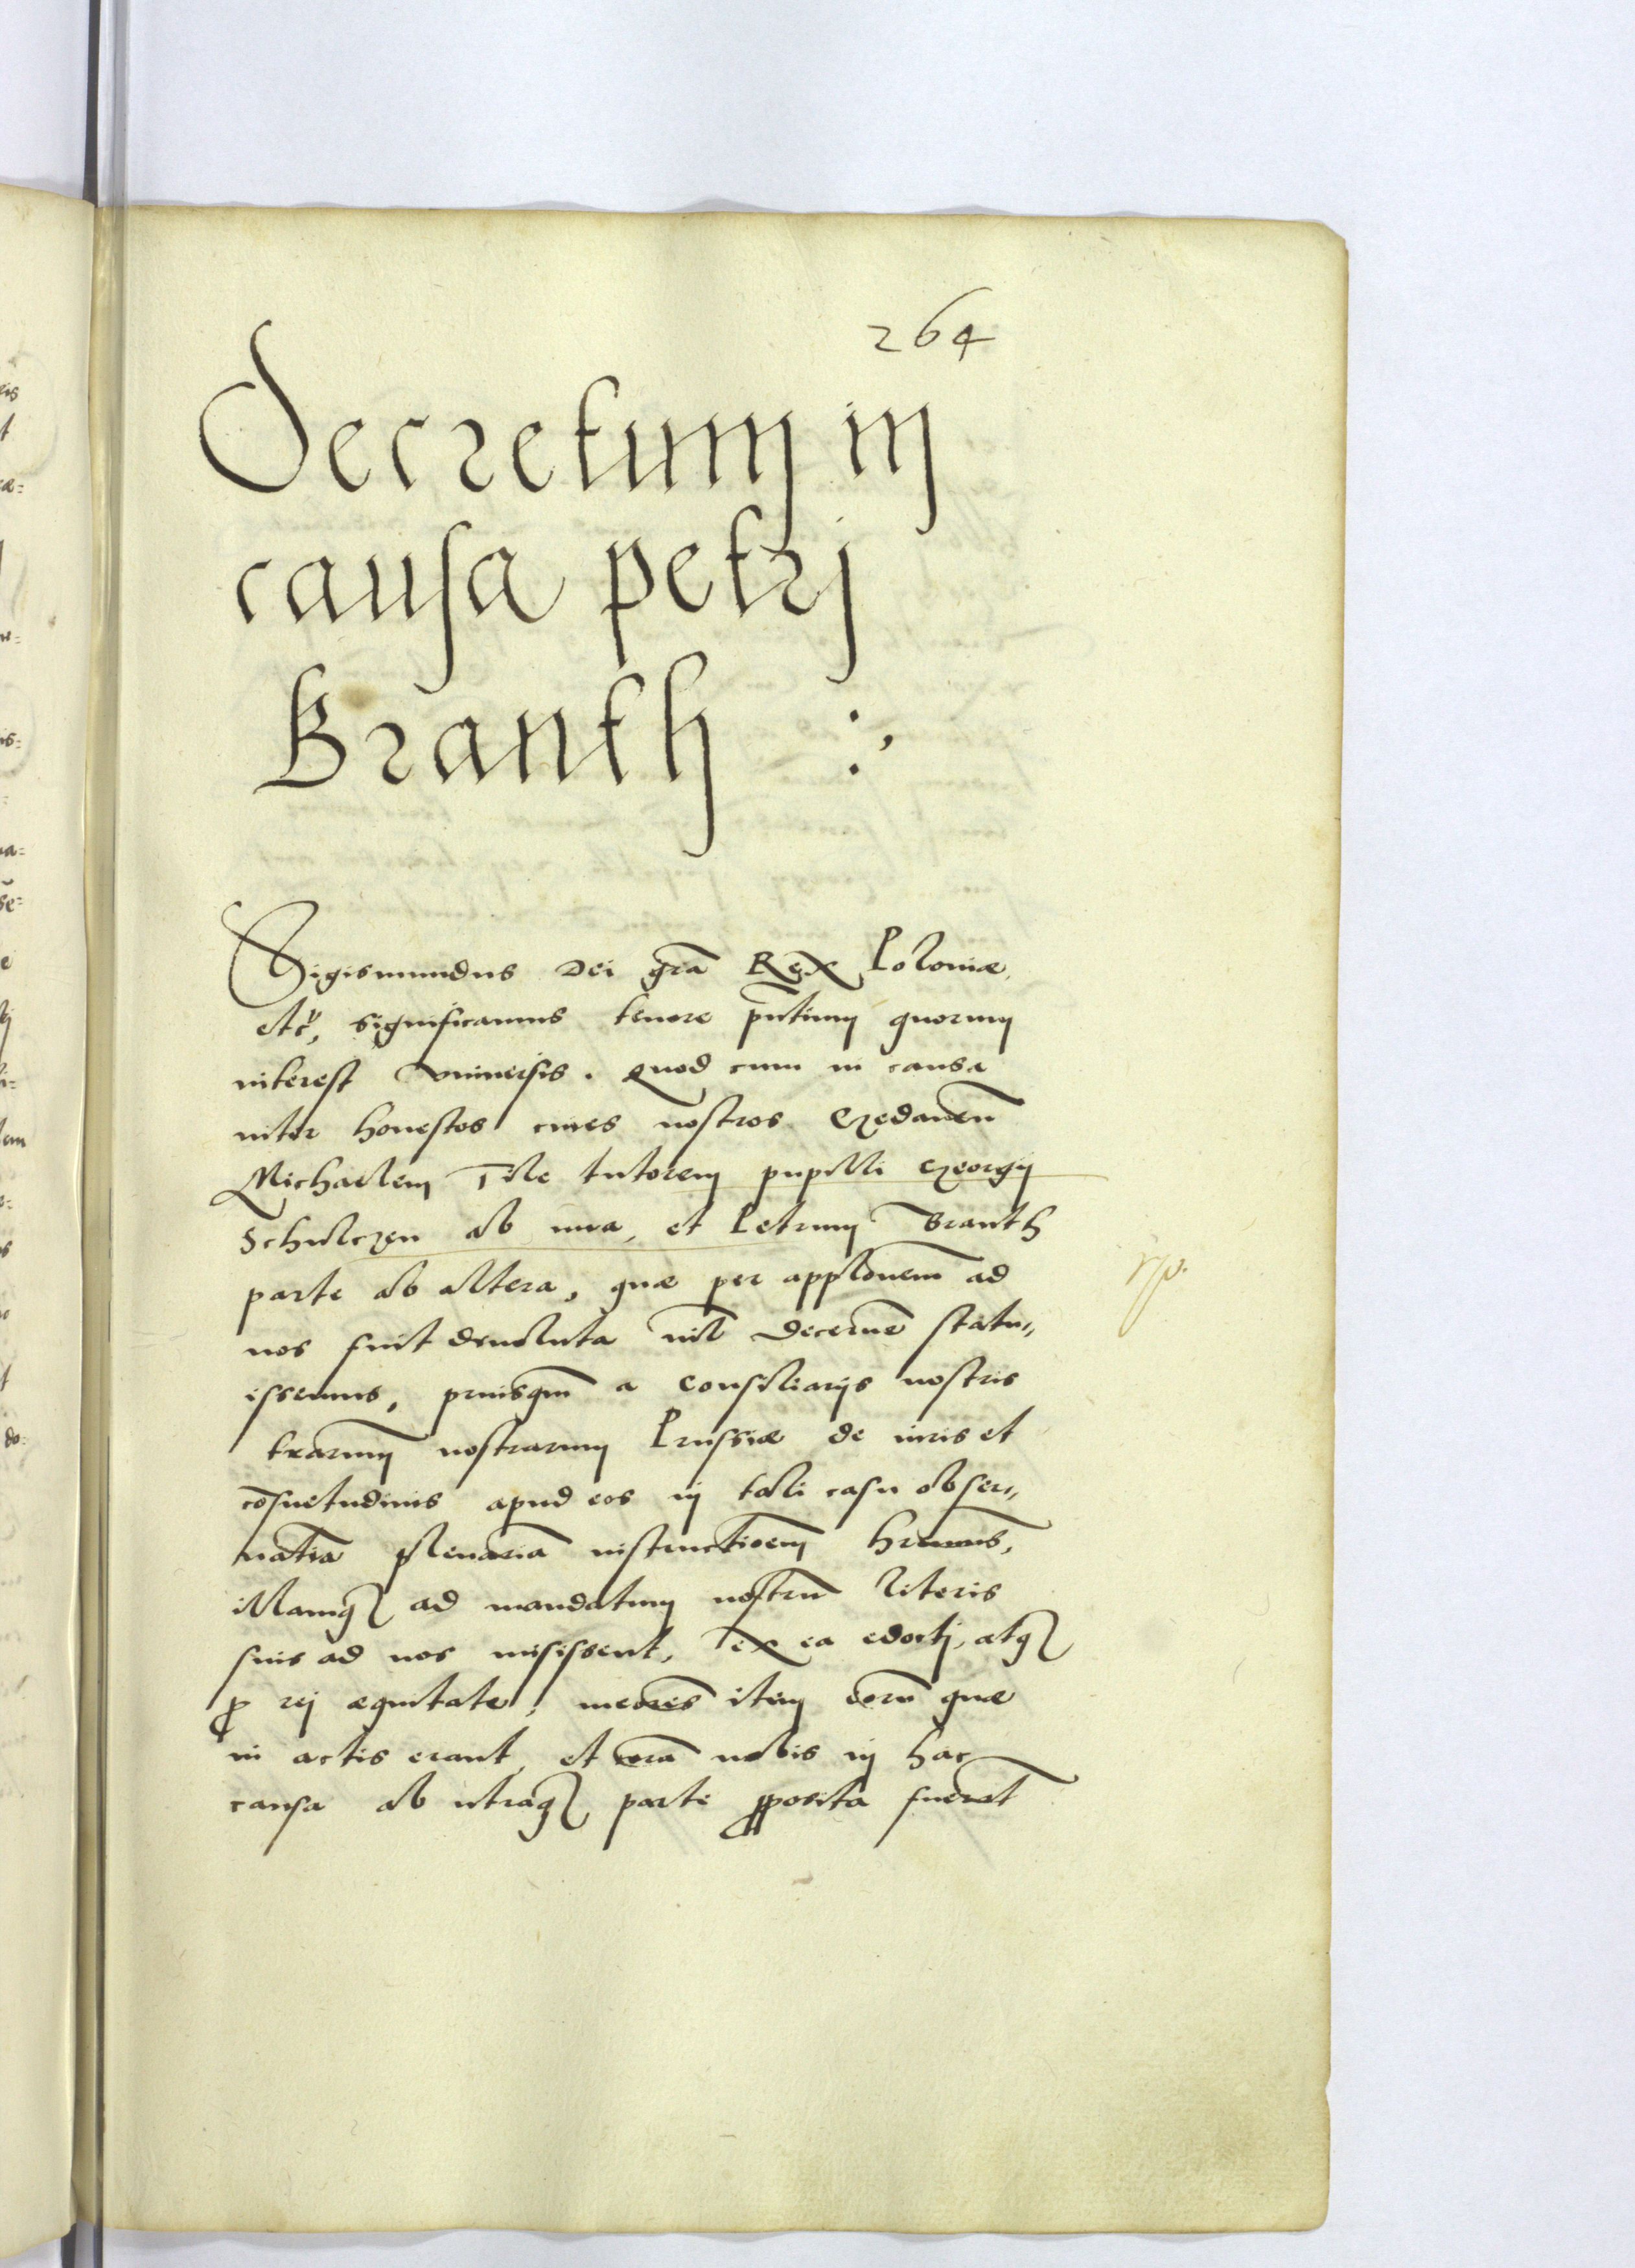 264
Decretum in
causa petrj
Branth :,
Sigismundus Dei grã Rex Poloniæ,
etc̃, significamus tenore pñtium quorum
interest vniuersis. Quod cum in causa
inter honestos ciues nostros Gedaneñ
Michaelem Tile tutorem pupilli Georgij
Schulczen ab vna, et Petrum Branth
parte ab altera, quæ per applõnem ad
nos fuit deuoluta nil̃ decernẽ statu„
issemus, priusqm̃ a Consiliarijs nostris
trarum̃ nostrarum Prussiæ de iuris et
cõsuetudinis apud eos in tali casu obser„
natiã plenariã instructioem̃ hremũs,
illamq₃ ad mandatum nostrũ literis
suis ad nos misissent, ex ea edoctj, atq₃
ꝓ rej æquitate, meõres itim eorũ quæ
in actis erant, et corã nobis in hac
causa ab vtraq₃ parte ꝓposita fuerũt